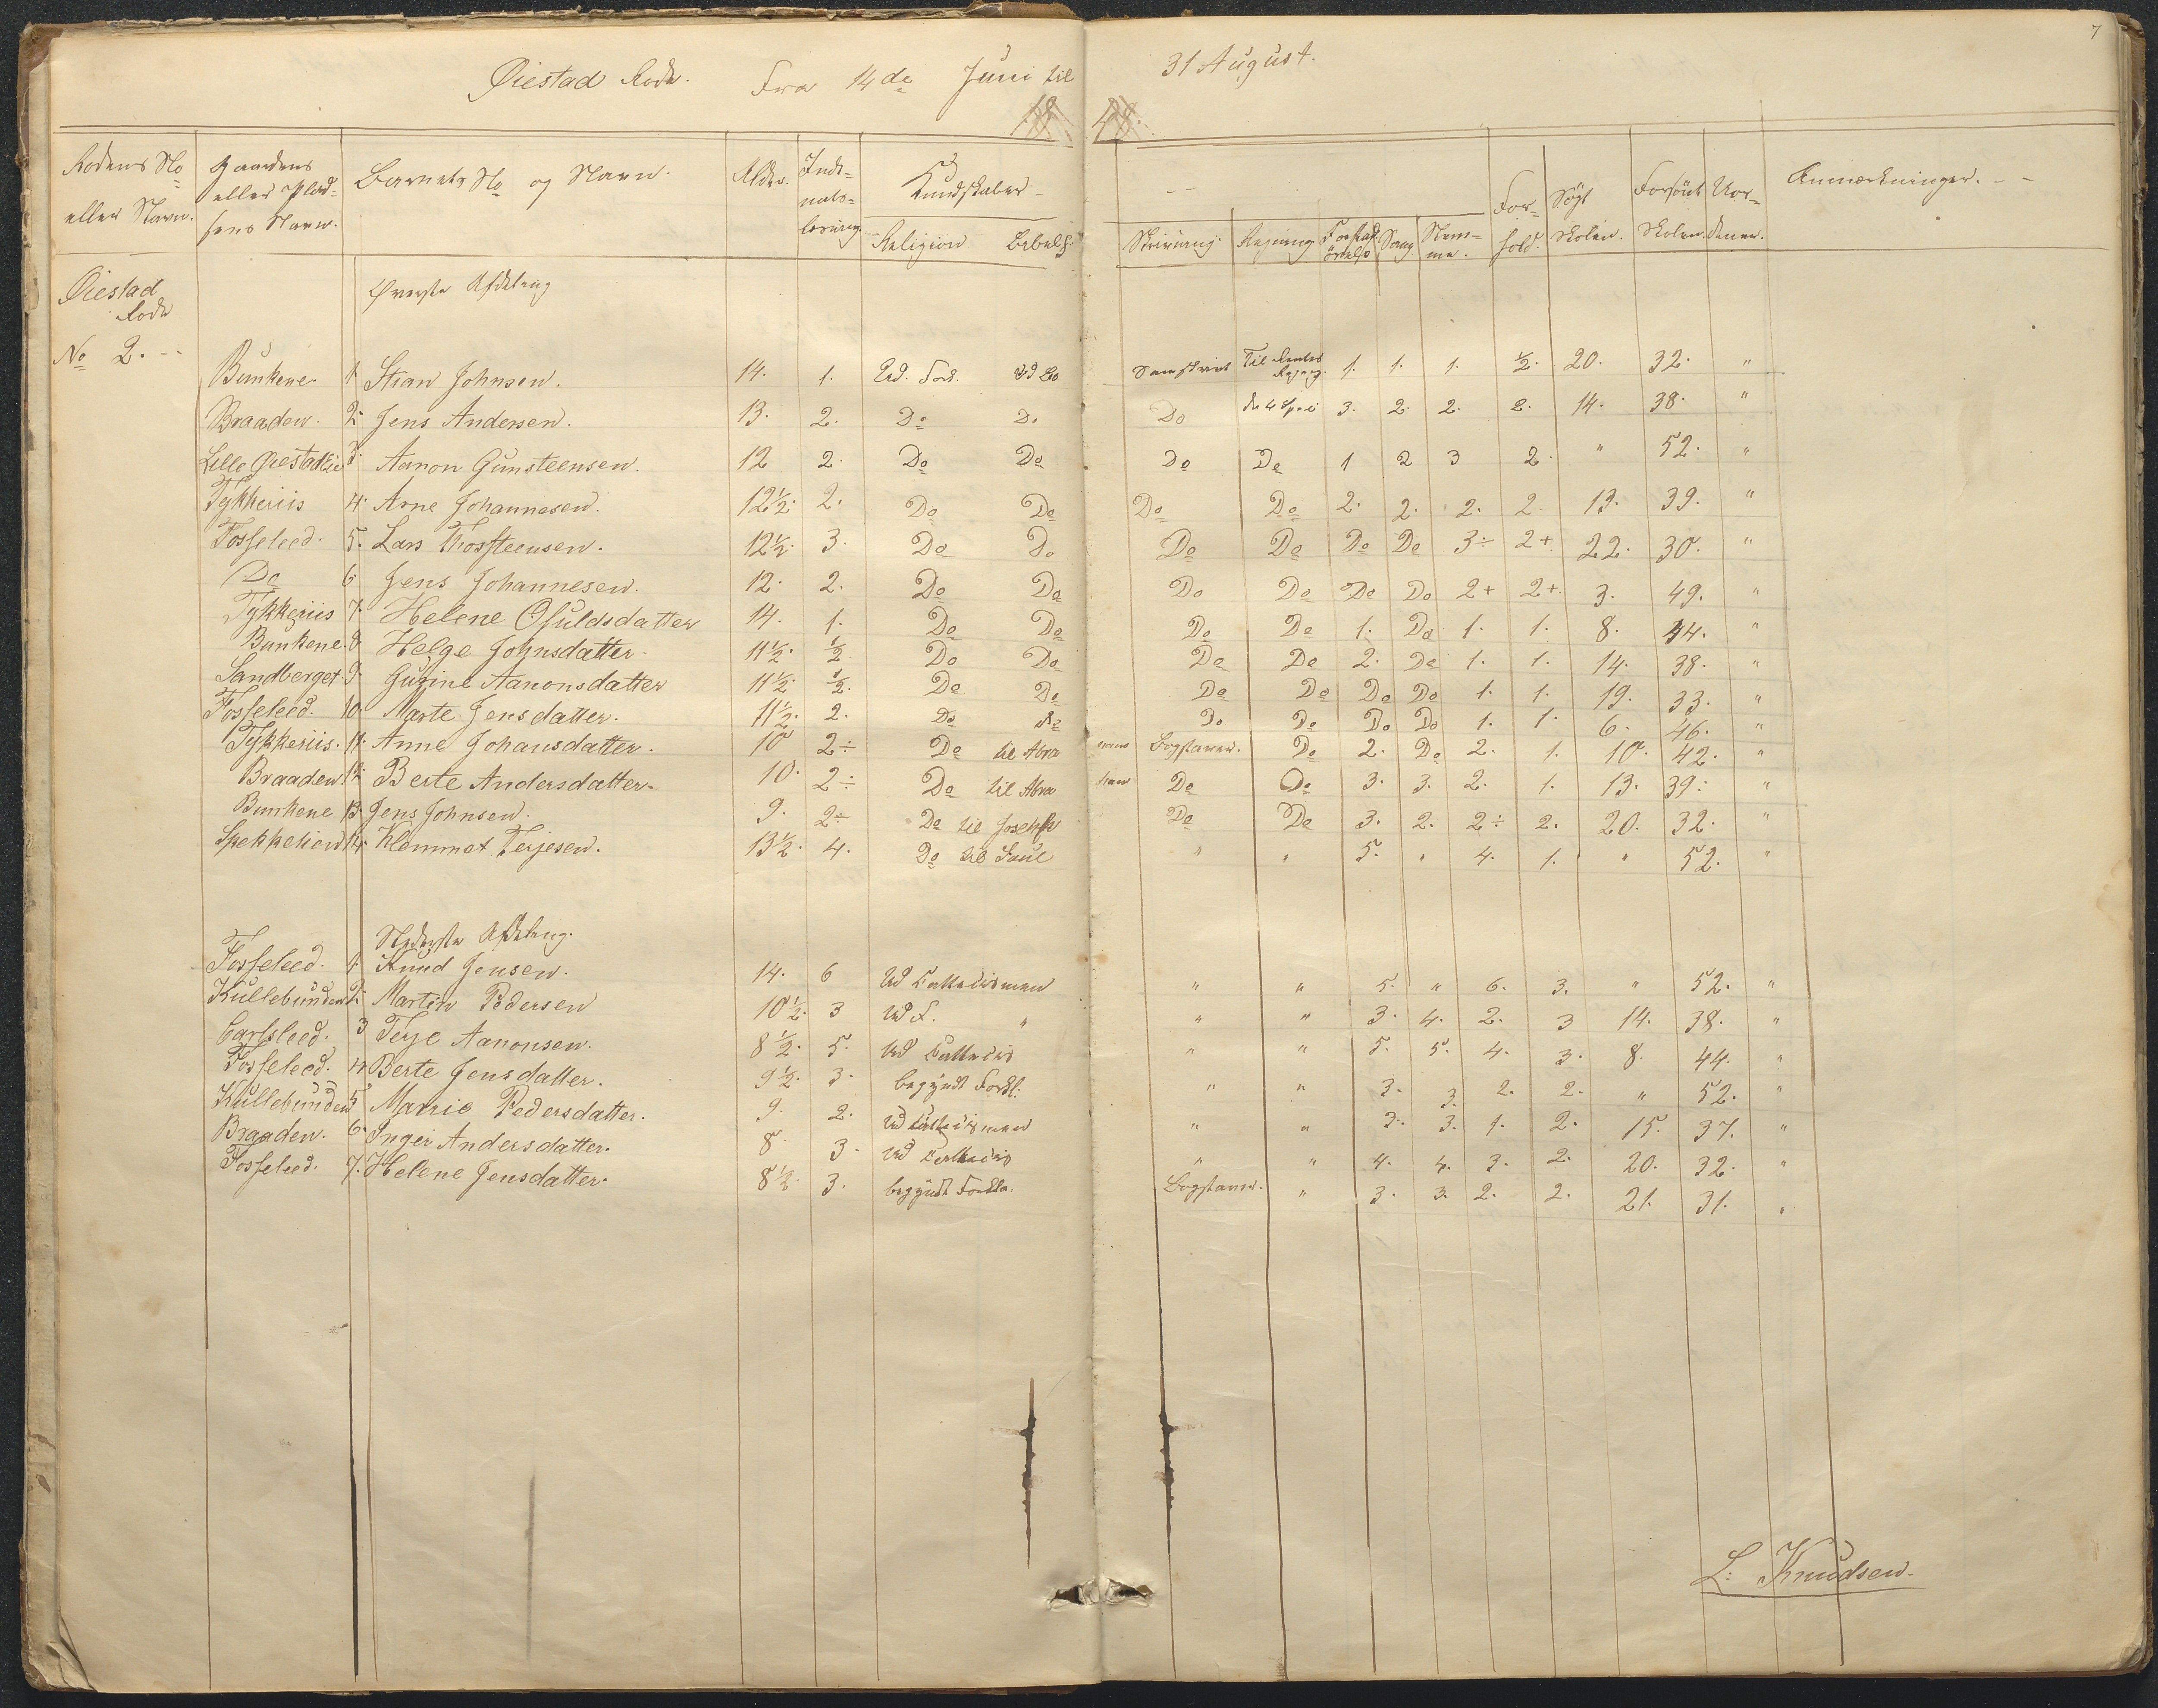 7
Øiestad Rode. Fra 14de Juni til 31 August.
Rodens No eller Navn. Gaardens eller Plad- sens Navn. Barnets No og Navn. Alder. Inde- nads- læsning Kundskaber Religion Bibelh. Skrivning. Regning Forstad- ørelse Sang. Nem- me. For- hold. Søgt Skolen. Forsømt Skolen. Uor- denen. Anmærkninger.
Øiestad Rode No 2. Øverste Afdeling
Bunkene 1. Stian Johnsen. 14. 1. Ud. Fork. Ud Bo Samskrivt Til Renters Regng. 1. 1. 1. ½. 20. 32. "
Braaden. 2. Jens Andersen. 13. 2. Do Do Do de 4 Speci 3. 2. 2. 2. 14. 38. "
Lille Øiestad 3. Aanon Gunsteensen. 12 2. Do Do Do Do 1 2 3 2. " 52. "
Tykkeriis 4. Arne Johannesen. 12½. 2. Do Do Do Do 2. 2. 2. 2. 13. 39. "
Fosseleed. 5. Lars Thorsteensen. 12½. 3. Do Do Do Do Do Do 3÷ 2+ 22. 30. "
Do 6 Jens Johannesen. 12. 2. Do Do Do Do Do Do 2+ 2+. 3. 49. "
Tykkeriis 7. Helene Osuldsdatter 14. 1. Do Do Do Do 1. Do 1. 1. 8. 44. "
Bunkene. 8 Helge Johnsdatter. 11½. ½. Do Do Do Do 2. Do 1. 1. 14. 38. "
Sandberget. 9. Gurine Aanonsdatter 11½ ½. Do Do Do Do Do Do 1. 1. 19. 33. "
Fosseleed. 10 Marte Jensdatter. 11½. 2. Do Do Do Do Do Do 1. 1. 6. 46. "
Tykkeriis. 11. Anne Johansdatter. 10 2÷ Do til Abra hams Bogstaver. Do 2. Do 2. 1. 10. 42. "
Braaden. 12. Berte Andersdatter. 10. 2÷ Do til Abra hams Do Do 3. 3. 2. 1. 13. 39. "
Bunkene 13. Jens Johnsen. 9. 2÷ Do til Joseph Do Do 3. 2. 2÷ 2. 20. 32. "
14. Klemmet Terjesen. 13½. 4. Do til Saul " " 5. " 4. 1. " 52. "
Nederste Afdeling.
Fosseleed. 1. Knud Jensen. 14. 6 Ud Cattecismen " " 5. " 6. 3. " 52. "
Kullebunden 2. Martin Pedersen 10½. 3 Ud F. " " " 3. 4. 2. 3 14. 38. "
Carlsleed. 3 Terje Aanonsen. 8½. 5. Ud Cattecis " " 5. 5. 4. 3. 8. 44. "
Fosseleed. 4. Berte Jensdatter. 9½. 3. begyndt Forkl. " " 3. 3. 2. 2. " 52. "
Kullebunden 5 Marrie Pedersdatter. 9. 2. Ud Cattecismen " " 3. 3. 1. 2. 15. 37. "
Braaden. 6. Inger Andersdatter. 8 3. Ud Cattecis " " 4. 4. 3. 2. 20. 32. "
Fosseleed. 7. Helene Jensdatter. 8½. 3. begyndt Forkla. Bogstaver. " 3. 3. 2. 2. 21. 31. "
L. Knudsen.